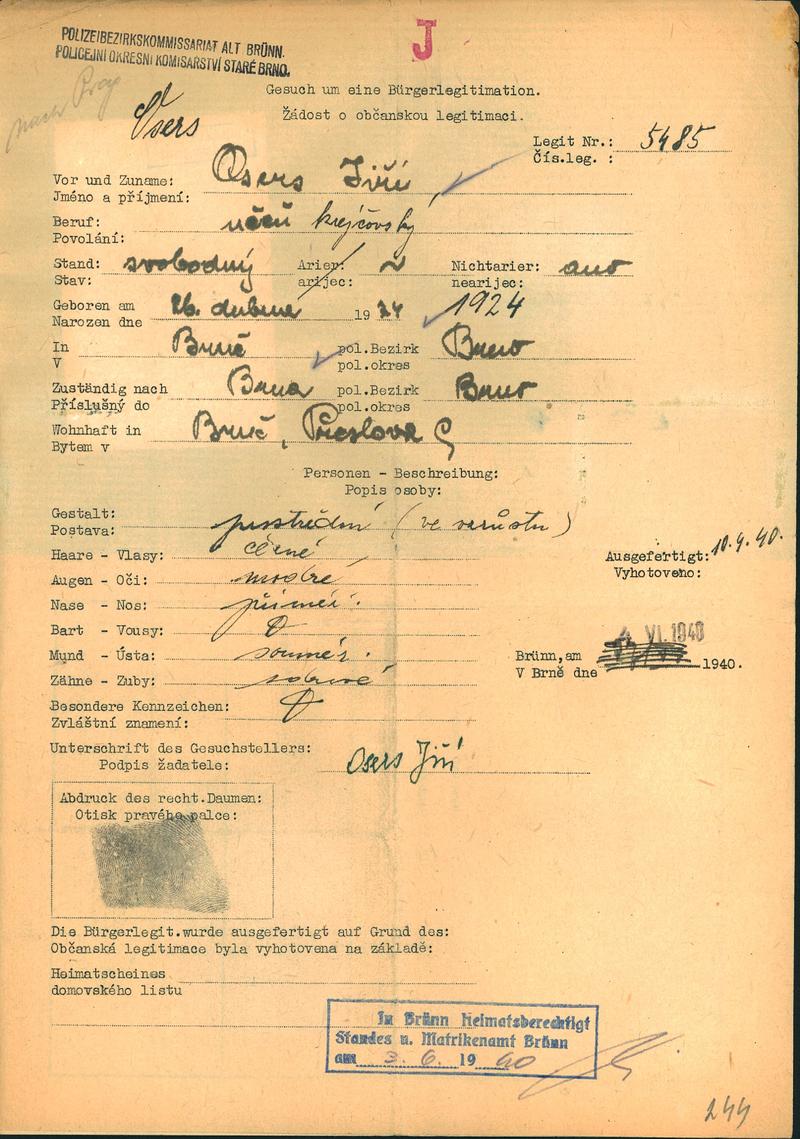 POLIZEIBEZIRKSKOMMISSARIAT ALT BRÜNN.
POLICEJNÍ OKRESNÍ KOMISARSTVÍ STARÉ BRNO.
J
nach Prag
Gesuch um eine Bürgerlegitimation.
Žádost o občanskou legitimaci.
Osers
Legit Nr.: 5485
Čís.leg. :
Vor und Zuname: Osers Jiří
Jméno a příjmení:
Beruf: učeň krejčovský
Povolání:
Stand: svobodný Arier: Nichtarier: ano
Stav: arijec: nearijec:
Geboren am 26. dubna 1924 1924
Narozen dne
In Brně pol.Bezirk Brno
V pol.okres
Zuständig nach Brna pol.Bezirk Brno
Příslušný do pol.okres
Wohnhaft in Brně,
Bytem v
Personen - Beschreibung:
Popis osoby:
Gestalt: prostřední (ve vzrůstu)
Postava:
Haare - Vlasy: černé
Augen - Oči: modré
Nase - Nos:
Bart - Vousy:
Mund - Ústa: souměr.
Zähne - Zuby: zdravé
Besondere Kennzeichen:
Zvláštní znamení:
Ausgefertigt: 10.9.40.
Vyhotoveno:
4. VI. 1940
Brünn, am 1940.
V Brně dne
Unterschrift des Gesuchstellers:
Podpis žadatele: Osers Jiří
Abdruck des recht.Daumen:
Otisk pravého palce:
Die Bürgerlegit.wurde ausgefertigt auf Grund des:
Občanská legitimace byla vyhotovena na základě:
Heimatscheines
domovského listu
In Brünn Heimatsberechtigt
Standes u. Matrikenamt Brünn
am 3. 6. 1940
244